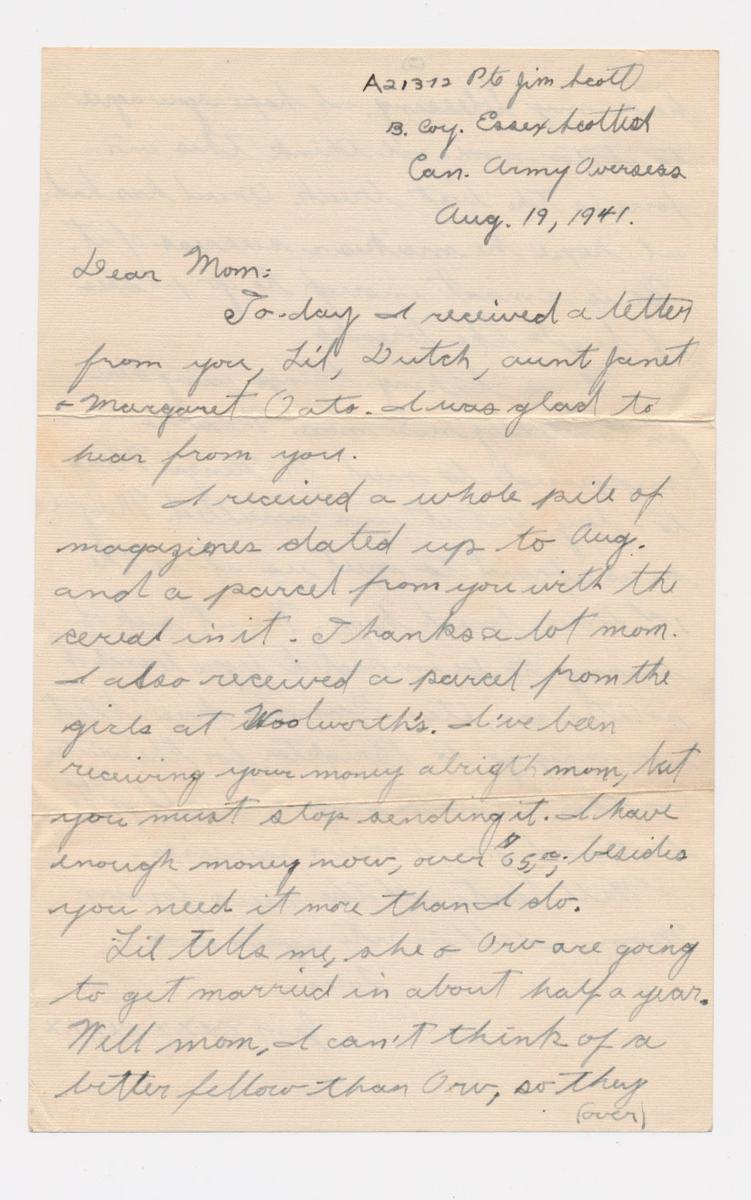 A21372 Pte Jim Scott
B. Coy. Essex Scottish
Can. Army Overseas
Aug. 19, 1941.
Dear Mom:
To-day I received a letter
from you, Lil, Dutch, aunt Janet
& Margaret Oato. I was glad to
hear from you.
I received a whole pile of
magazines dated up to Aug.
and a parcel from you with the
cereal in it. Thanks a lot mom.
I also received a parcel from the
girls at Woolworth's. I've been
receiving your money alrigth mom, but
you must stop sending it. I have
enough money now, over besides
you need it more than I do.
Lil tells me, she & Orv are going
to get married in about half a year.
Well mom, I can't think of a
better fellow than Orv, so they
(over)